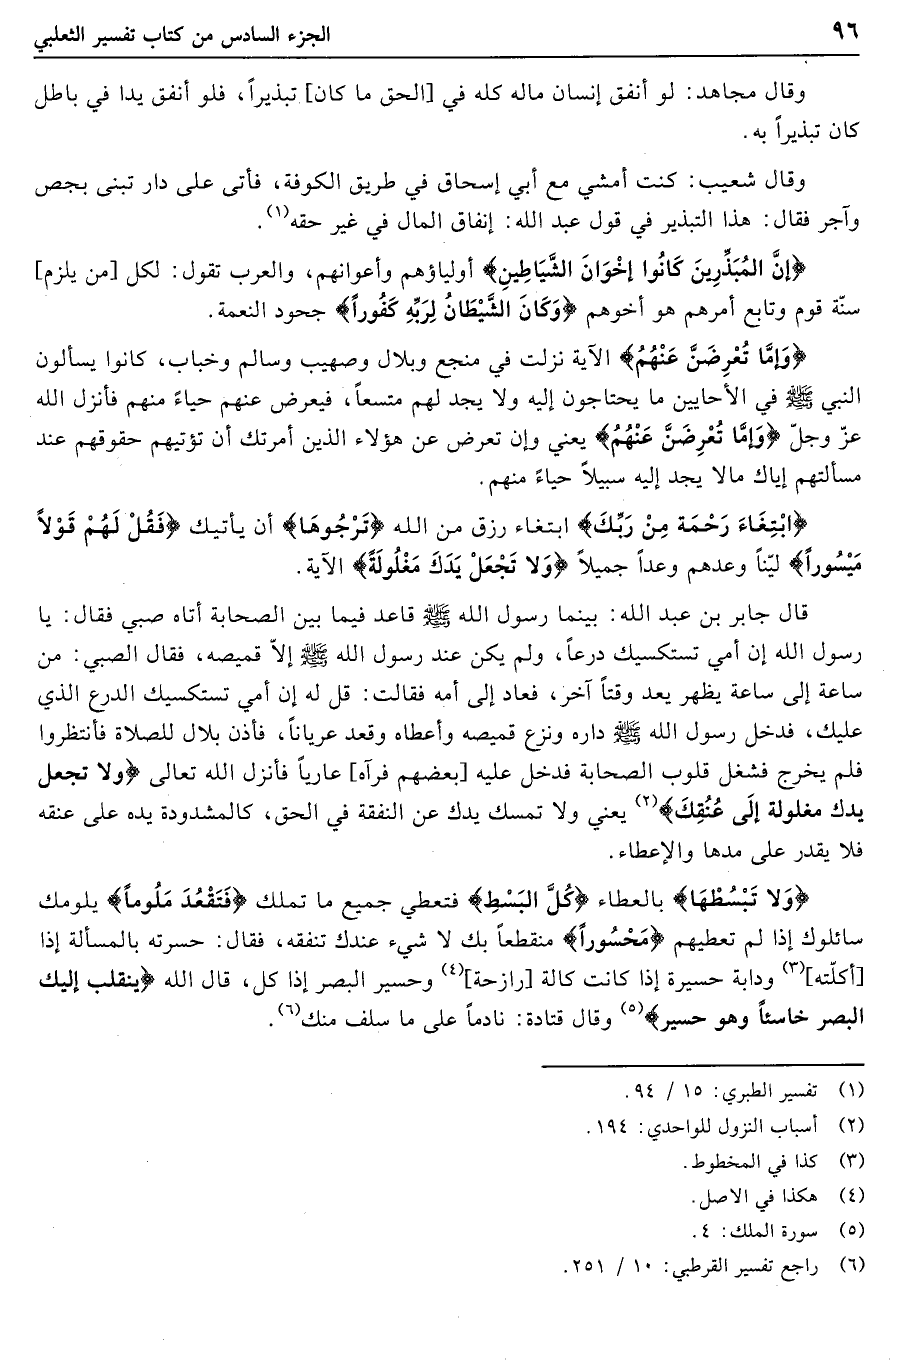 ٩٦
الجزء السادس من كتاب تفسير الثعلبي
وقال مجاهد: لو أنفق إنسان ماله كله في [الحق ما كان] تبذيراً، فلو أنفق يدا في باطل
كان تبذيراً به.
وقال شعيب: كنت أمشي مع أبي إسحاق في طريق الكوفة، فأتى على دار تبنى بجص
وآجر فقال: هذا التبذير في قول عبد الله: إنفاق المال في غير حقه(١).
﴿إنَّ المُبَذِّرِينَ كَانُوا إخْوَانَ الشَّيَاطِينِ﴾ أولياؤهم وأعوانهم، والعرب تقول: لكل [من يلزم]
سنّة قوم وتابع أمرهم هو أخوهم ﴿وَكَانَ الشَّيْطَانُ لِرَبِّهِ كَفُوراً﴾ جحود النعمة.
﴿وَإمَّا تُعْرِضَنَّ عَنْهُمُ﴾ الآية نزلت في منجع وبلال وصهيب وسالم وخباب، كانوا يسألون
النبي ﷺ في الأحايين ما يحتاجون إليه ولا يجد لهم متسعاً، فيعرض عنهم حياءً منهم فأنزل الله
عزّ وجلّ ﴿وَإمَّا تُعْرِضَنَّ عَنْهُمُ﴾ يعني وإن تعرض عن هؤلاء الذين أمرتك أن تؤتيهم حقوقهم عند
مسألتهم إياك مالا يجد إليه سبيلاً حياءً منهم.
﴿ابْتِغَاءَ رَحْمَة مِنْ رَبِّكَ﴾ ابتغاء رزق من الله ﴿تَرْجُوهَا﴾ أن يأتيك ﴿فَقُلْ لَهُمْ قَوْلاً
مَيْسُوراً﴾ ليّناً وعدهم وعداً جميلاً ﴿وَلا تَجْعَلْ يَدَكَ مَغْلُولَةً﴾ الآية.
قال جابر بن عبد الله: بينما رسول الله ﷺ قاعد فيما بين الصحابة أتاه صبي فقال: يا
رسول الله إن أمي تستكسيك درعاً، ولم يكن عند رسول الله ﷺ إلاّ قميصه، فقال الصبي: من
ساعة إلى ساعة يظهر يعد وقتاً آخر، فعاد إلى أمه فقالت: قل له إن أمي تستكسيك الدرع الذي
عليك، فدخل رسول الله ﷺ داره ونزع قميصه وأعطاه وقعد عرياناً، فأذن بلال للصلاة فأنتظروا
فلم يخرج فشغل قلوب الصحابة فدخل عليه [بعضهم فرآه] عارياً فأنزل الله تعالى ﴿ولا تجعل
يدك مغلولة إلَى عُنُقِكَ﴾(٢) يعني ولا تمسك يدك عن النفقة في الحق، كالمشدودة يده على عنقه
فلا يقدر على مدها والإعطاء.
﴿وَلا تَبْسُطْهَا﴾ بالعطاء ﴿كُلَّ البَسْطِ﴾ فتعطي جميع ما تملك ﴿فَتَقْعُدَ مَلُوماً﴾ يلومك
سائلوك إذا لم تعطيهم ﴿مَحْسُوراً﴾ منقطعاً بك لا شيء عندك تنفقه، فقال: حسرته بالمسألة إذا
[أكلّته](٣) ودابة حسيرة إذا كانت كالة [رازحة](٤) وحسير البصر إذا كل، قال الله ﴿ينقلب إليك
البصر خاسئاً وهو حسير﴾(٥) وقال قتادة: نادماً على ما سلف منك(٦).
(١) تفسير الطبري: ١٥ / ٩٤.
(٢) أسباب النزول للواحدي: ١٩٤.
(٣) كذا في المخطوط.
(٤) هكذا في الاصل.
(٥) سورة الملك: ٤.
(٦) راجع تفسير القرطبي: ١٠ / ٢٥١.